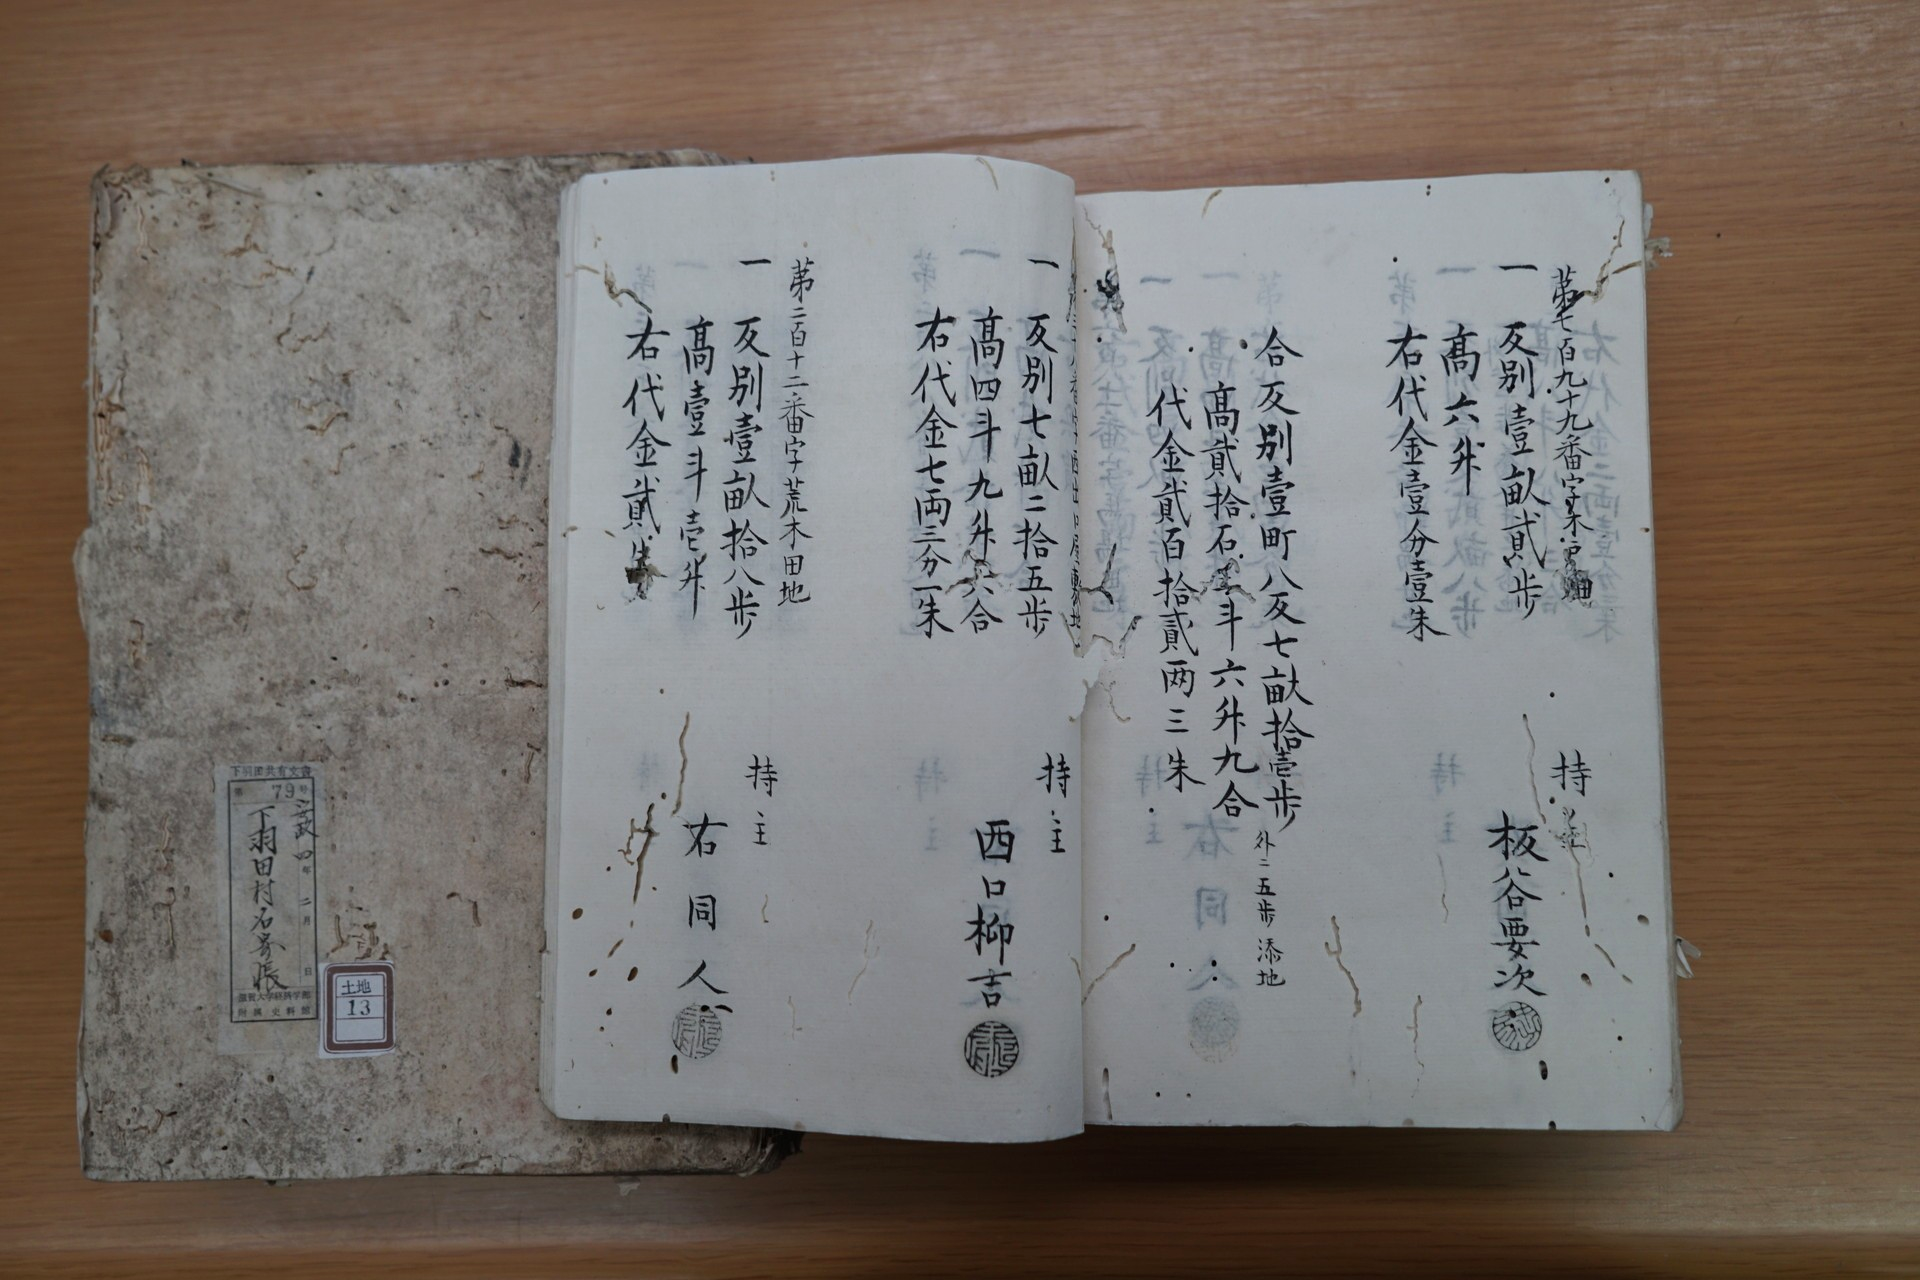 第七百九十九番字
一 反別壹畝貳歩
高六升
右代金壹分壹朱
持主
板谷要次
合反別壹町八反七畝拾壱歩
外ニ五歩 添地
高貳拾石 斗六升九合
代金貳百拾貳两三朱
一 反別七畝二拾五歩
高四斗九升六合
右代金七両三分一朱
持主
西口柳吉
第二百十二番字荒木田地
一 反別壹畝拾八歩
高壹斗壱升
右代金貳朱
持主
右同人
下羽田共有文書
第 79 号
政四年二月 日
下羽田村名寄帳
滋賀大学経済学部
附属史料館
土地
13